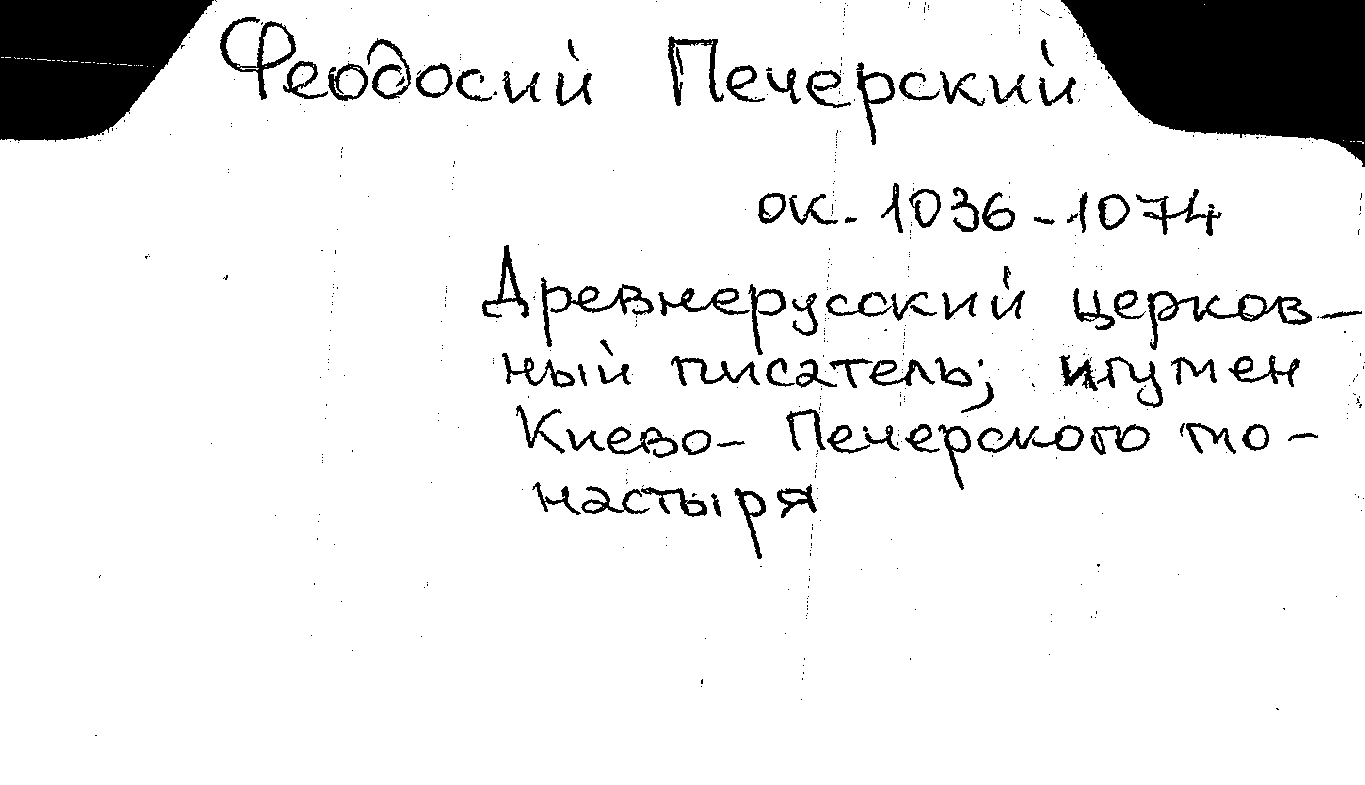 Феодосий Печерский
ок. 1036-1074
Древнерусский церков-
ный писатель; игумен
Киево-Печерского мо-
настыря